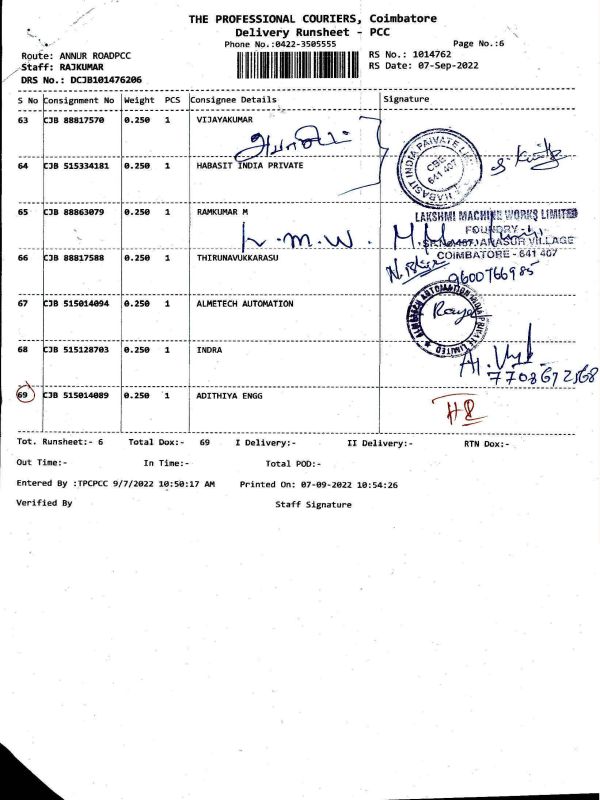 THE PROFESSIONAL COURIERS, Coimbatore
Delivery Runsheet - PCC
Phone No.:0422-3505555
Page No.:6
Route: ANNUR ROADPCC
RS No.: 1014762
Staff: RAJKUMAR
RS Date: 07-Sep-2022
DRS No.: DCJB101476206
S No Consignment No Weight PCS Consignee Details Signature
63 CJB 88817570 0.250 1 VIJAYAKUMAR
64 CJB 515334181 0.250 1 HABASIT INDIA PRIVATE
HABASIT INDIA PAIVATE
CBE
641 407
65 CJB 88863079 0.250 1 RAMKUMAR M
L.M.W.
LAKSHMI MACHINE WORKS LIMITED
FOUNDRY
VILLAGE
COIMBATORE - 641 407
66 CJB 88817588 0.250 1 THIRUNAVUKKARASU
9600766985
67 CJB 515014094 0.250 1 ALMETECH AUTOMATION
68 CJB 515128703 0.250 1 INDRA
7708672568
69 CJB 515014089 0.250 1 ADITHIYA ENGG
Tot. Runsheet:- 6 Total Dox:- 69 I Delivery:- II Delivery:- RTN Dox:-
Out Time:- In Time:- Total POD:-
Entered By :TPCPCC 9/7/2022 10:50:17 AM Printed On: 07-09-2022 10:54:26
Verified By Staff Signature